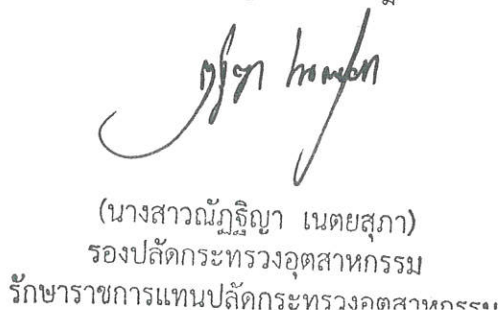 (นางสาวณัฏฐิญา เนตยสุภา)
รองปลัดกระทรวงอุตสาหกรรม
รักษาราชการแทนปลัดกระทรวงอุตสาหกรรม